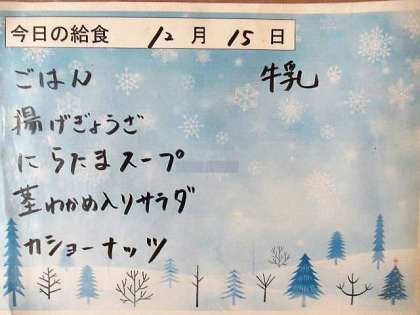 今日の給食 12月15日
ごはん 牛乳
揚げぎょうざ
にらたまスープ
茎わかめ入りサラダ
カシューナッツ